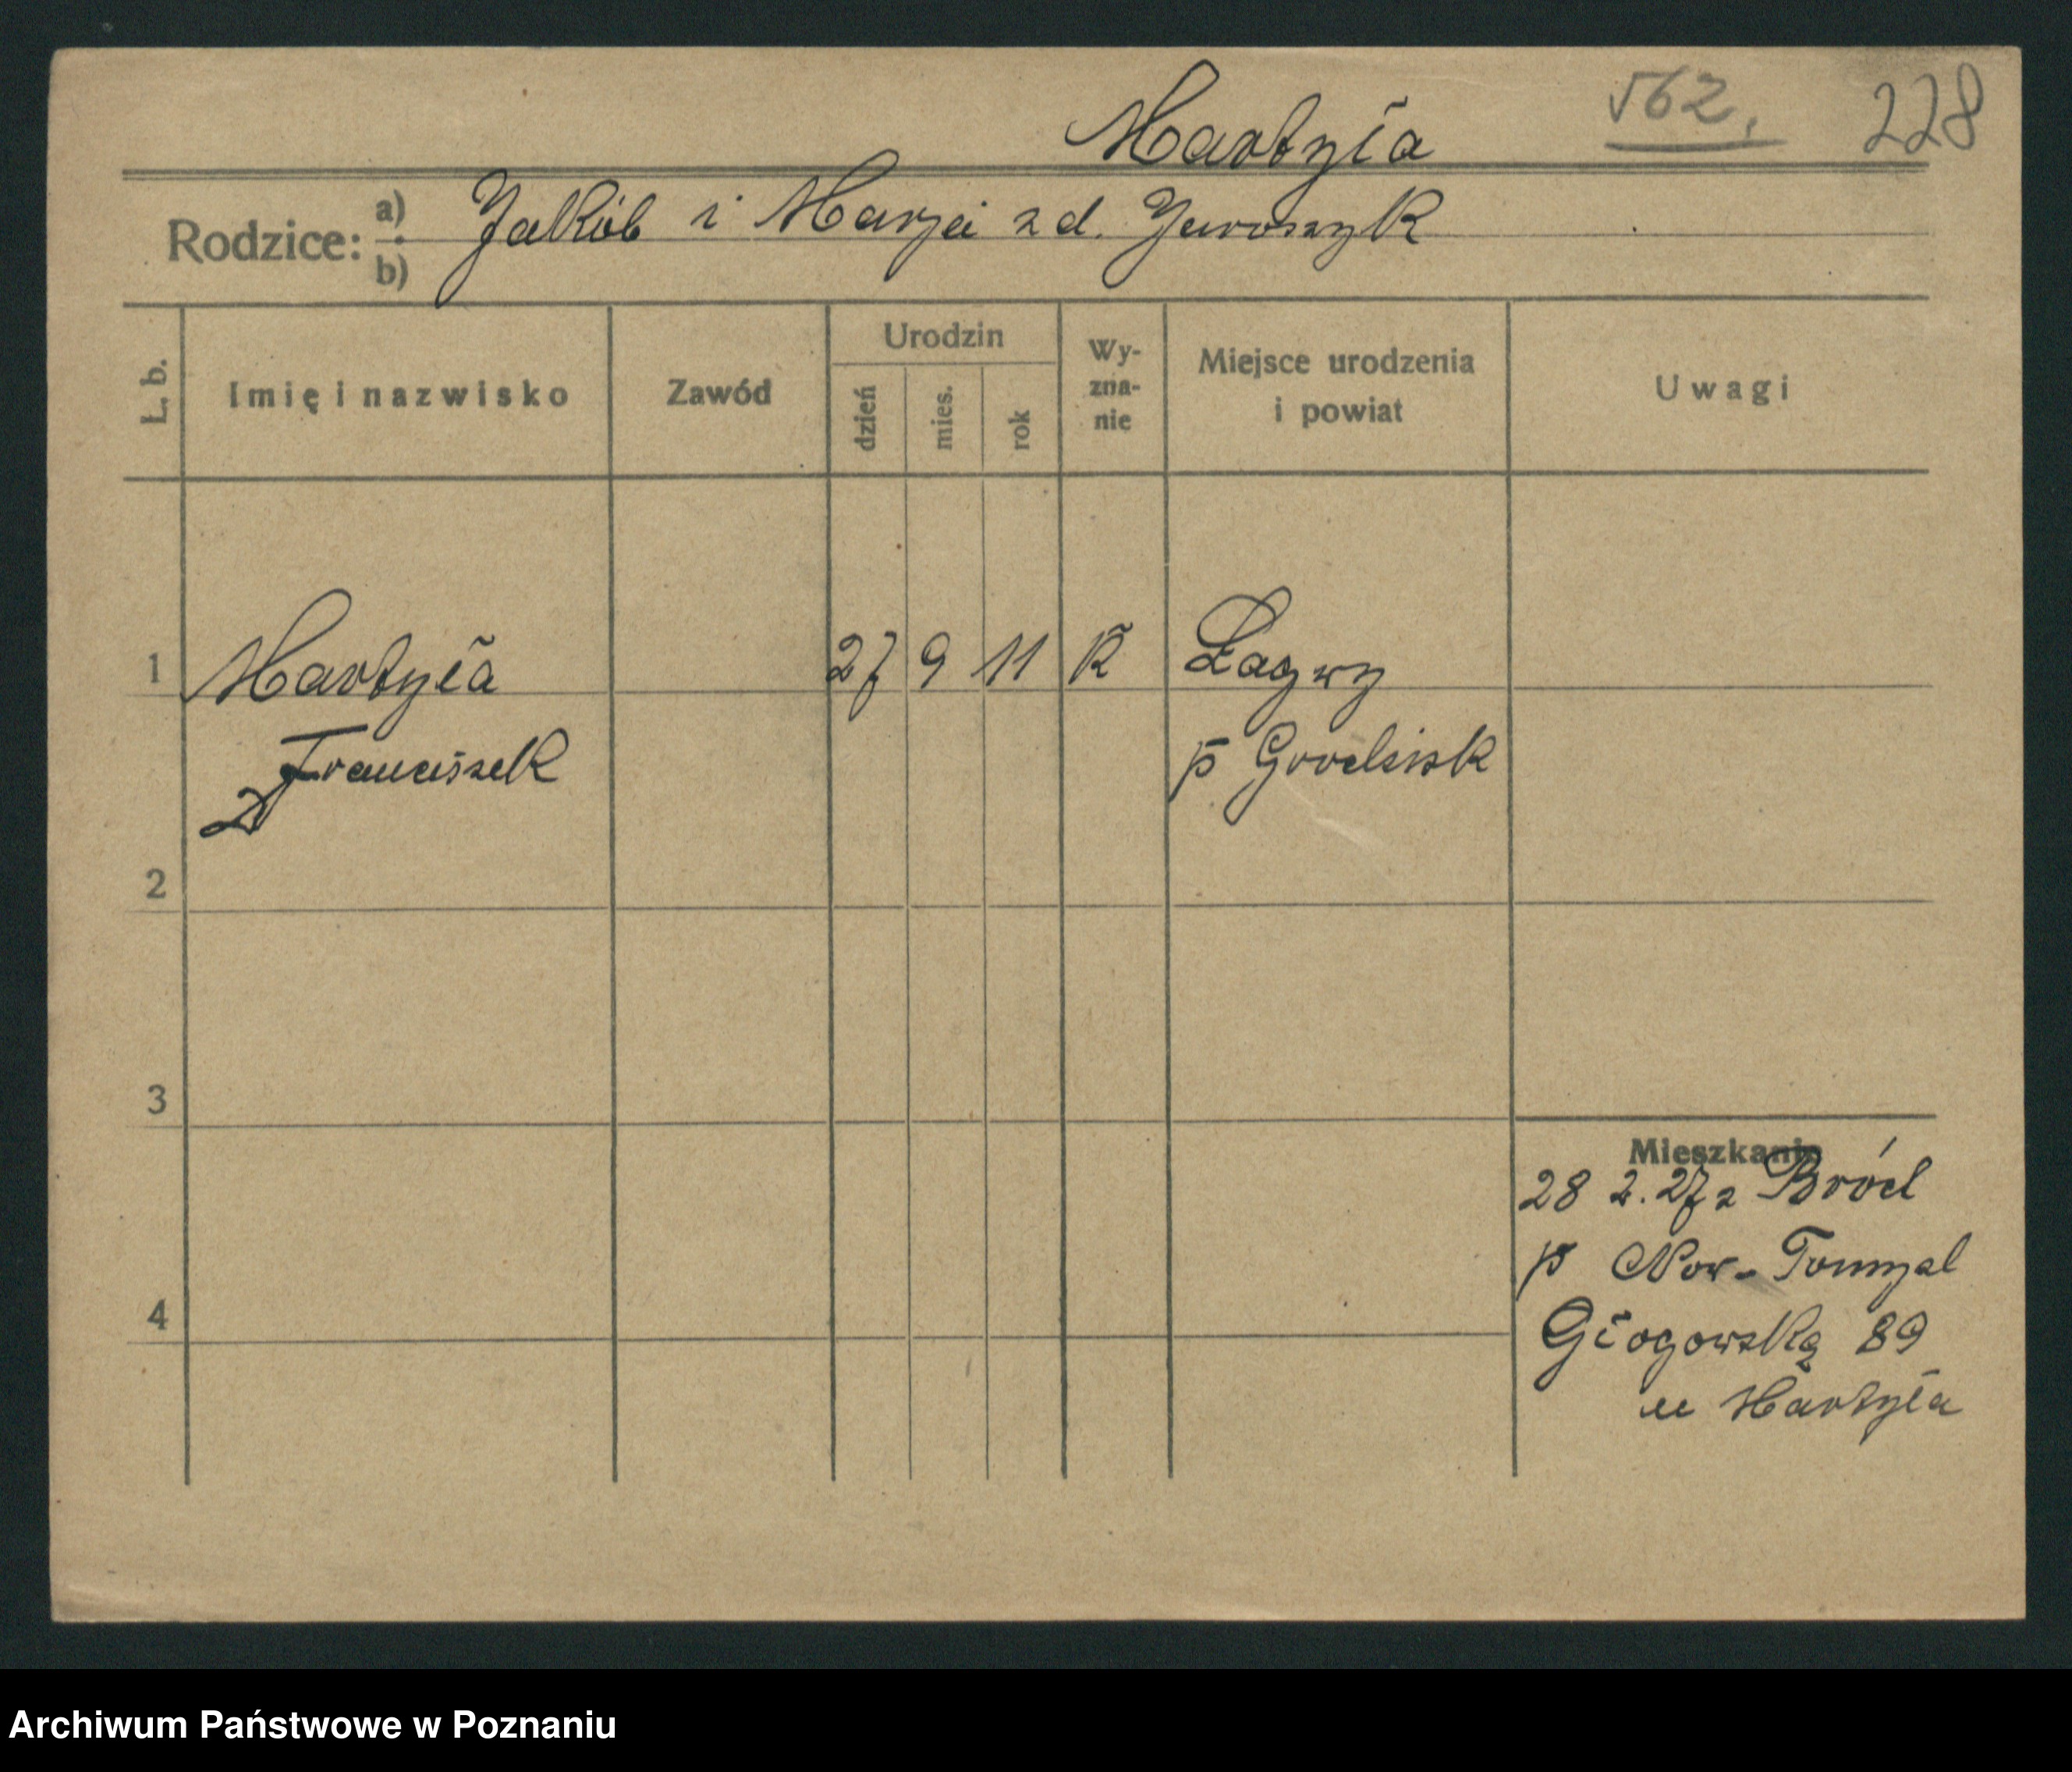 Martyła 562. 228
Rodzice: a) Jakób i Marja z d. Jaroszyk
b)
L. b. Imię i nazwisko Zawód Urodzin dzień mies. rok Wy-zna-nie Miejsce urodzenia i powiat Uwagi
1 Martyła 27 9 11 K Łagwy
Franciszek p Grodzisk
2
3
Mieszkanie
28 2. 27 z Bród
p Now-Tomysl
4 Głogowską 89
u Martyła
Archiwum Państwowe w Poznaniu